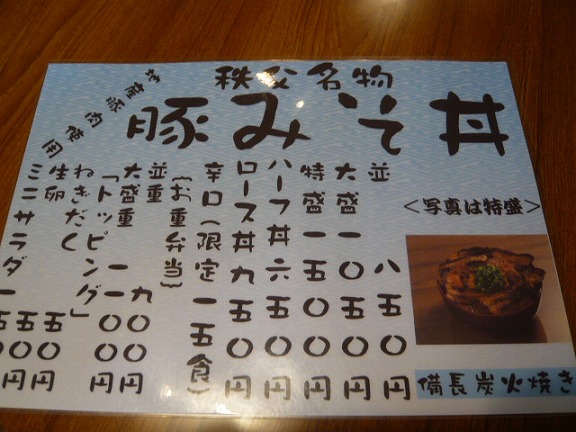 秩父名物
豚みそ丼
地産豚肉使用
並 八五〇円
大盛一〇五〇円
特盛一五〇〇円
ハーフ丼六五〇円
ロース丼九五〇円
辛口(限定一五食)
(お重弁当)
並重 九〇〇円
大盛重 一一〇〇円
「トッピング」
ねぎだく 五〇円
生卵 五〇円
ミニサラダ 一五〇円
<写真は特盛>
備長炭火焼き